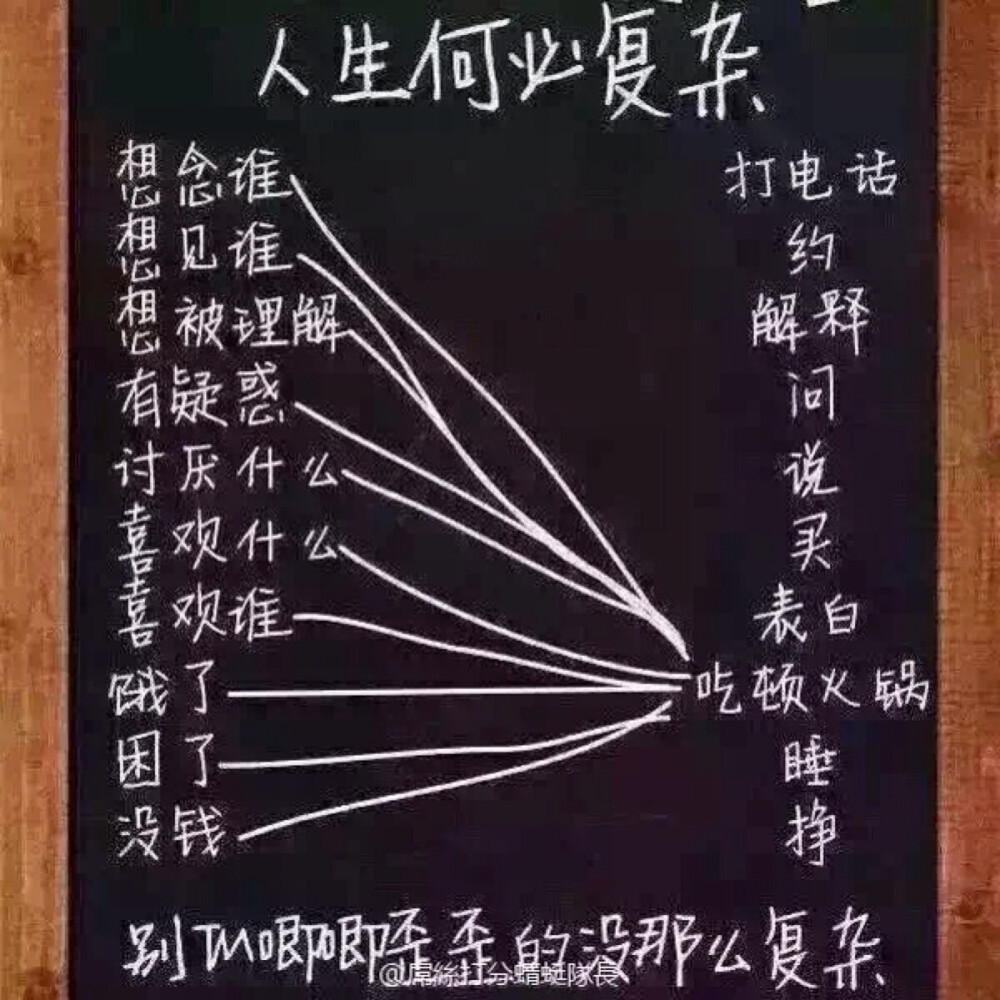 人生何必复杂
想念谁 打电话
想见谁 约
想被理解 解释
有疑惑 问
讨厌什么 说
喜欢什么 买
喜欢谁 表白
饿了 吃顿火锅
困了 睡
没钱 挣
别TM唧唧歪歪的没那么复杂
@屌絲打分蜻蜓隊長